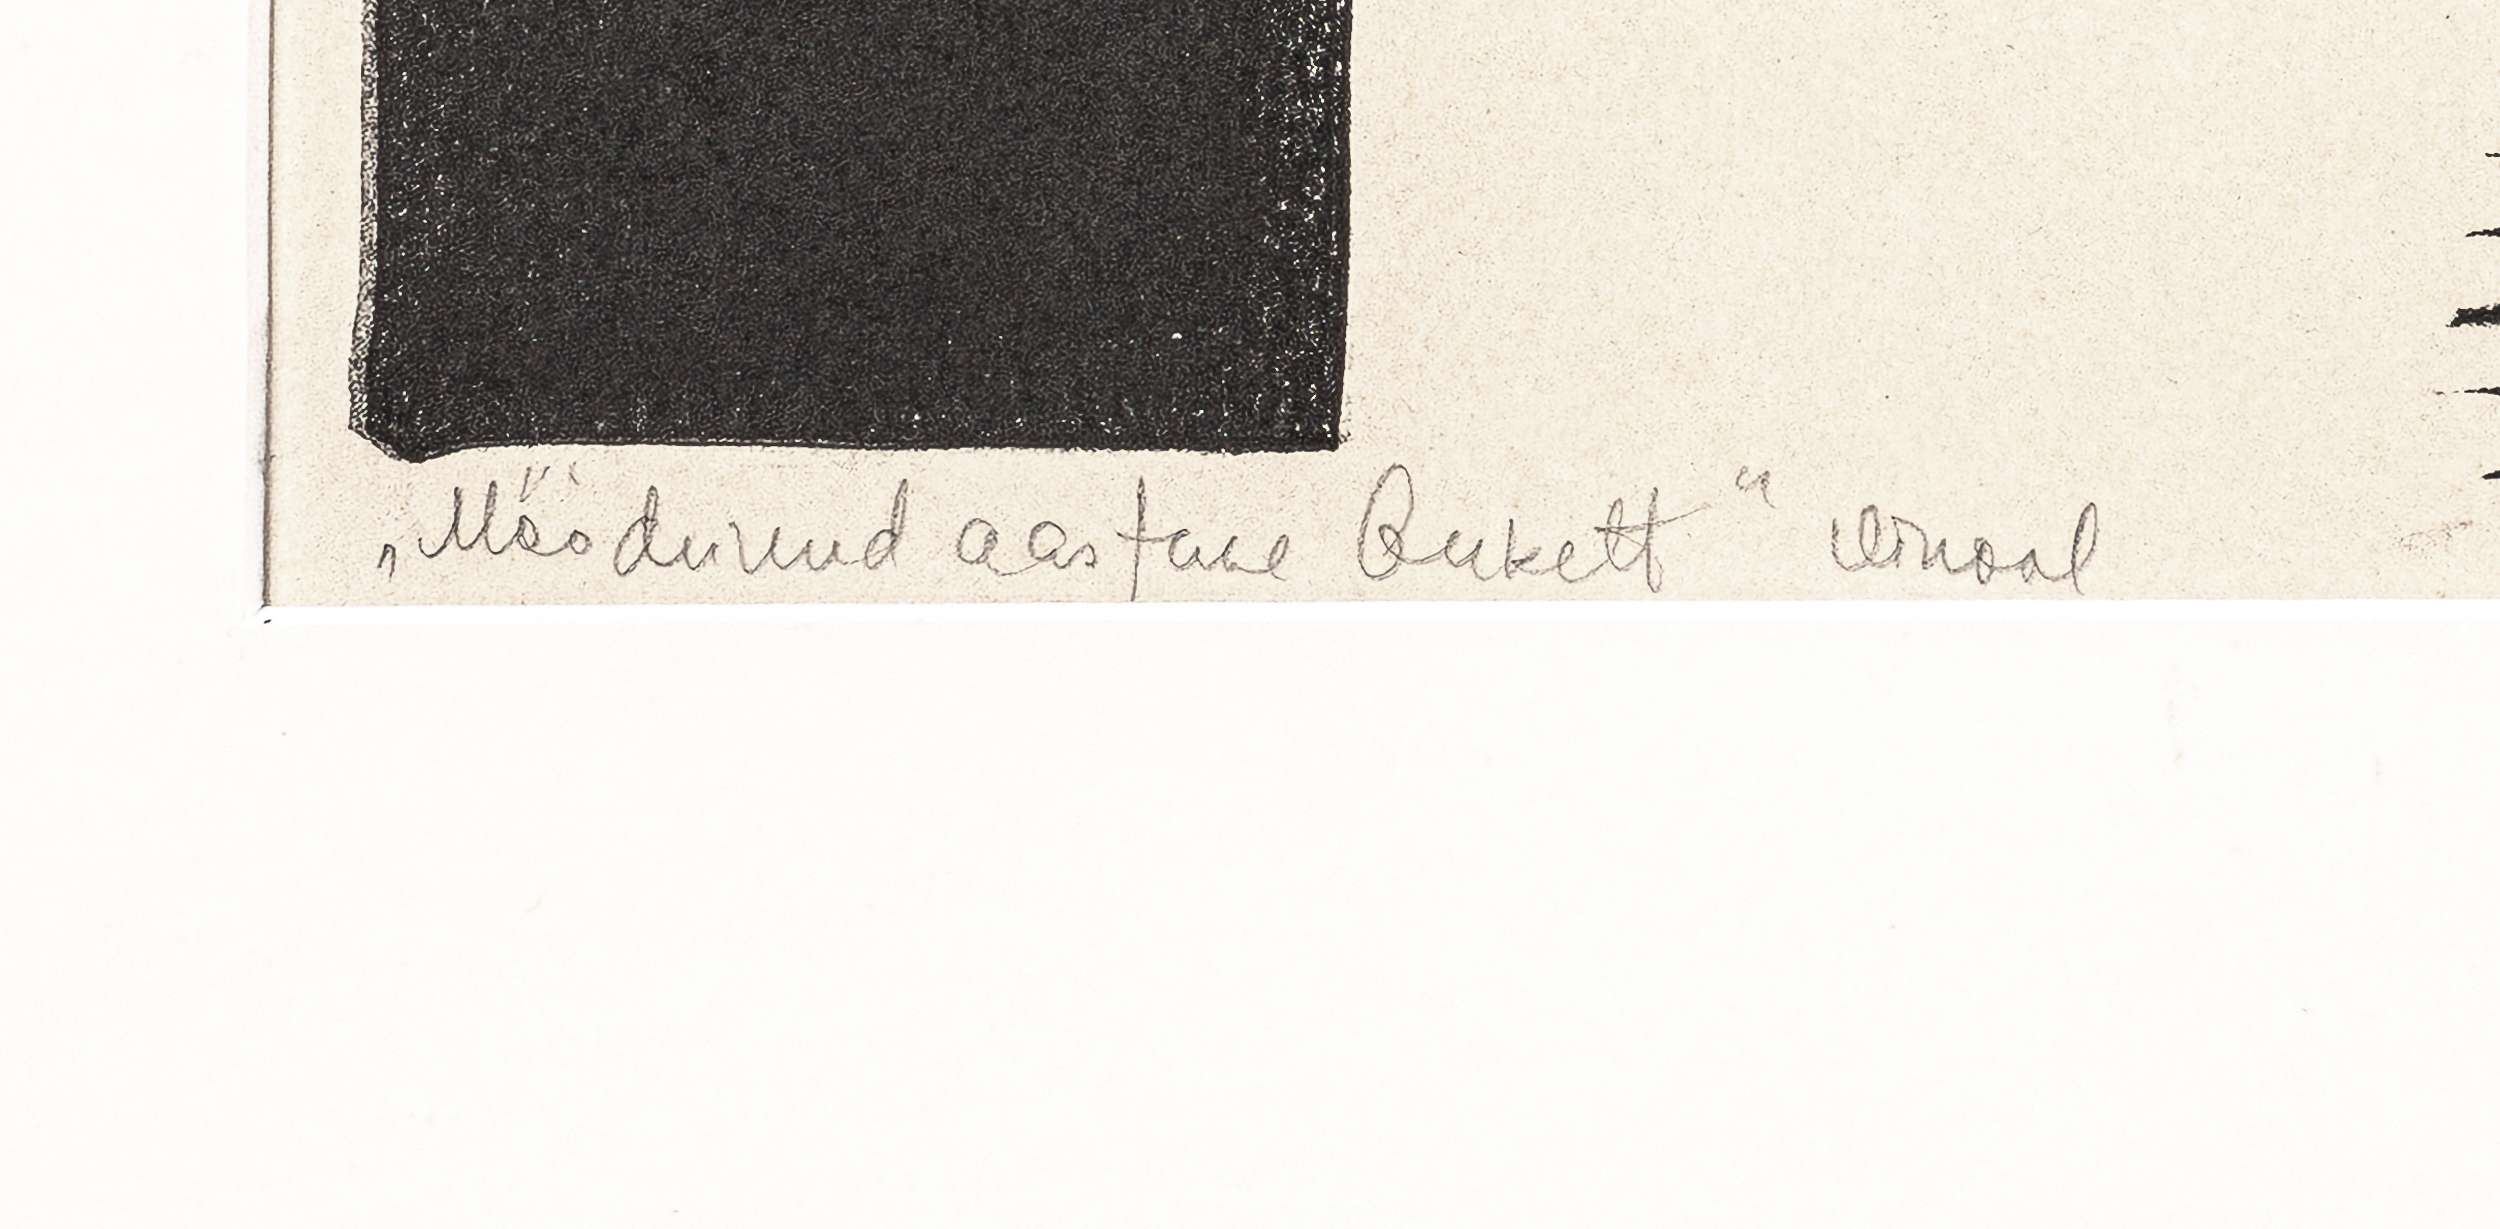 „Möödunud aastane Bukett“ Vinool